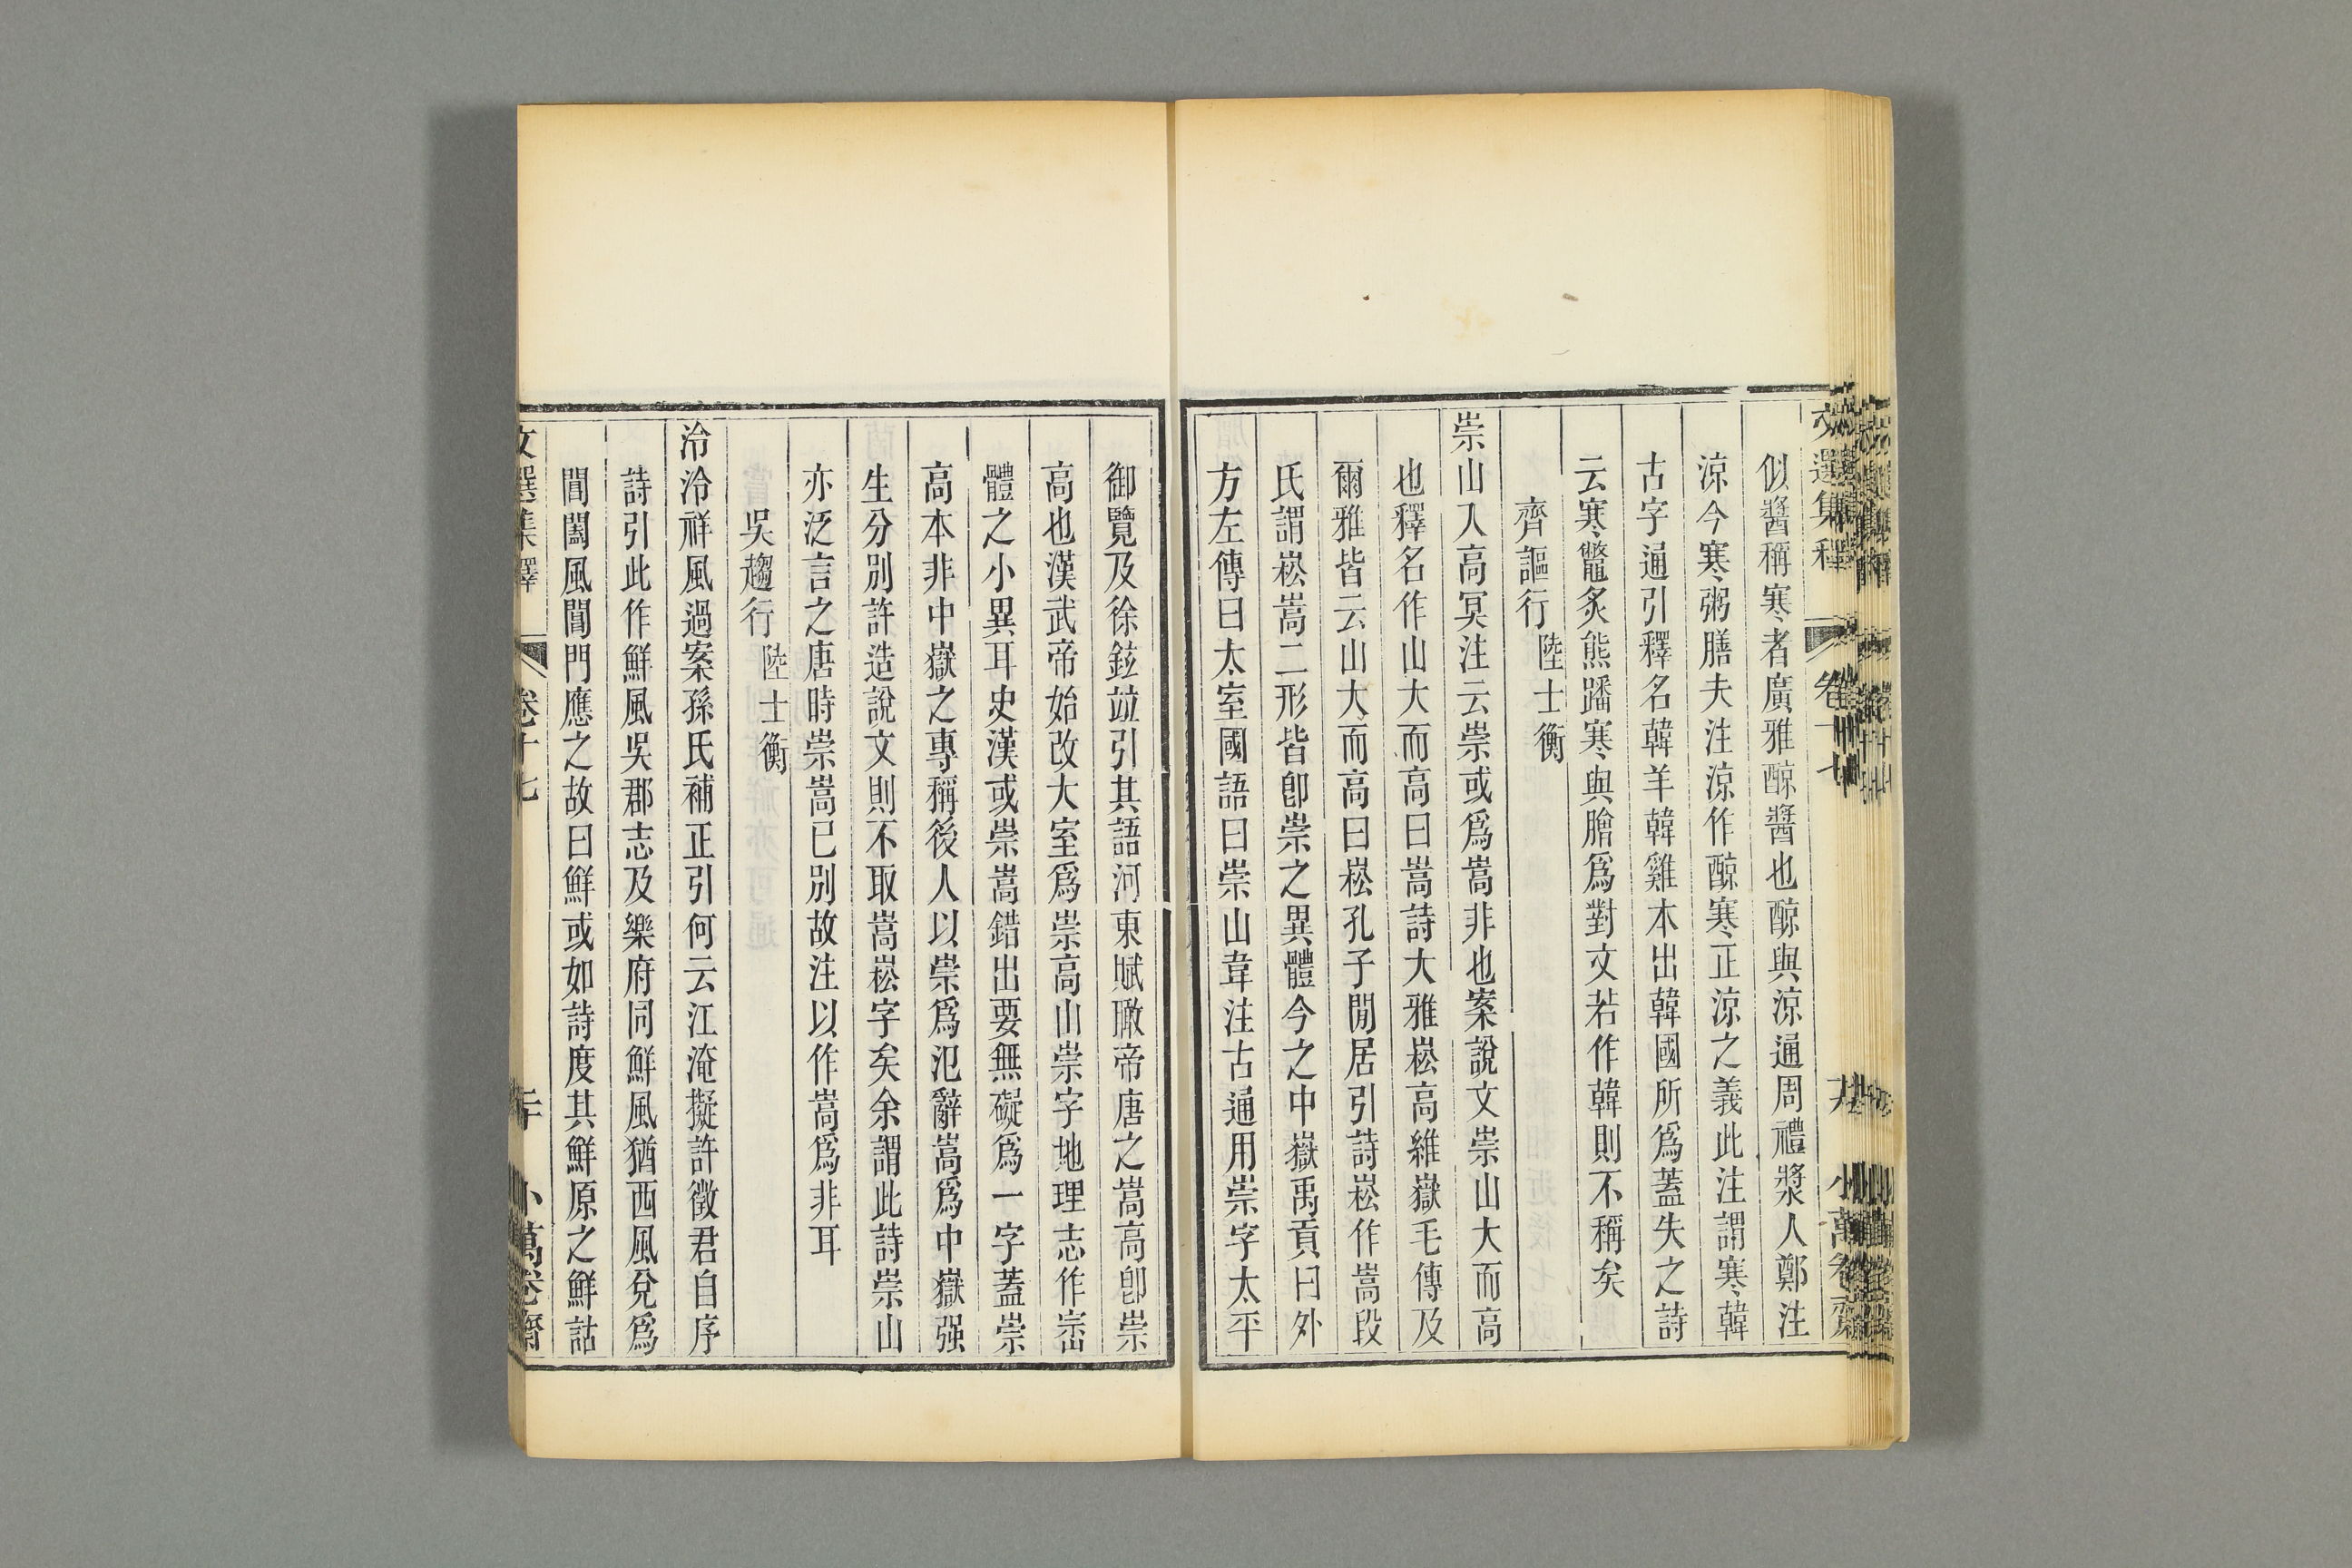 文選集釋 卷十七 十九 小萬卷齋
似醬稱寒者廣雅䣼醬也䣼與涼通周禮漿人鄭注
涼今寒粥膳夫注涼作䣼寒正涼之義此注謂寒韓
古字通引釋名韓羊韓雞本出韓國所爲蓋失之詩
云寒鼈炙熊蹯寒與膾爲對文若作韓則不稱矣
齊謳行 陸士衡
崇山入高冥注云崇或爲嵩非也案說文崇山大而高
也釋名作山大而高曰嵩詩大雅崧高維嶽毛傳及
爾雅皆云山大而高曰崧孔子閒居引詩崧作嵩段
氏謂崧嵩二形皆卽崇之異體今之中嶽禹貢曰外
方左傳曰太室國語曰崇山韋注古通用崇字太平
御覽及徐鉉竝引其語河東賦瞰帝唐之嵩高卽崇
高也漢武帝始改大室爲崇高山崇字地理志作崈
體之小異耳史漢或崇嵩錯出要無礙爲一字蓋崇
高本非中嶽之專稱後人以崇爲氾辭嵩爲中嶽强
生分別許造說文則不取嵩崧字矣余謂此詩崇山
亦泛言之唐時崇嵩已別故注以作嵩爲非耳
吳趨行 陸士衡
泠泠祥風過案孫氏補正引何云江淹擬許徵君自序
詩引此作鮮風吳郡志及樂府同鮮風猶西風兌爲
閶闔風閶門應之故曰鮮或如詩度其鮮原之鮮詁
文選集釋 卷十七 二十 小萬卷齋